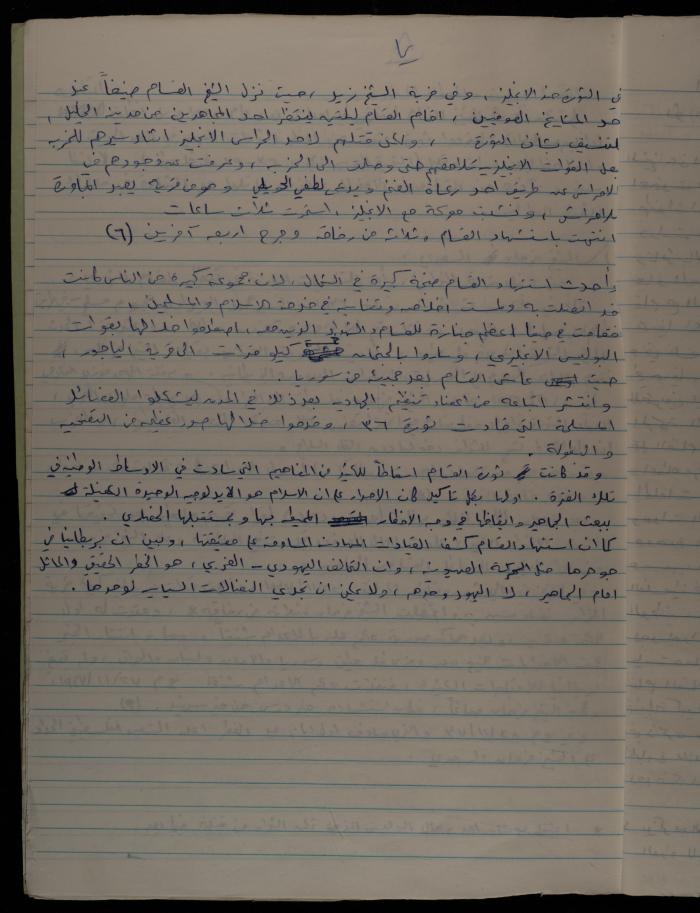 ٧
في الثورة ضد الانجليز، وفي خربة الشيخ زيد، حيث نزل الشيخ القسام ضيفاً عند
احد المشايخ الصوفيين، اقام القسام ليلتيه لينتظر احد المجاهدين من مدينة الخليل،
للتنسيق بشأن الثورة، ولكن قتلهم لاحد الحراس الانجليز اثناء سيرهم للخربه
جعل القوات الانجليزية تلاحقهم حتى وصلت الى الخربه، وعرفت عن وجودهم في
الاحراش عن طريق احد رعاة الغنم ويدعى لطفي وهو من قرية يعبد المجاورة
للاحراش، ونشبت معركة مع الانجليز، استمرت ثلاث ساعات
انتهت باستشهاد القسام وثلاثة من رفاقه وجرح اربعه آخرين (٦)
وأحدث استشهاد القسام ضجة كبيرة في الشمال، لان مجموعة كبيرة من الناس كانت
قد اتصلت به ولمست اخلاصه وتفانيه في خدمة الاسلام والمسلمين،
فقامت في حيفا اعظم جنازة للقسام والشهداء الذين معه، اصطدموا خلالها بقوات
البوليس الانجليزي، وساروا بالجثمان كيلو مترات الى قرية الياجور،
حيث عاش القسام بعد مجيئه من سوريا.
وانتشر اتباعه من اعضاء تنظيم الجهاديه بعد ذلك في المدن ليشكلوا الفصائل
المسلحة التي قادت ثورة ٣٦، وقدموا خلالها صور عظيمه من التضحيه
والبطولة.
وقد كانت ثورة القسام اسقاطاً للكثير من المفاهيم التي سادت في الاوساط الوطنيه في
تلك الفترة. اولها بكل تأكيد كان الاصرار على ان الاسلام هو الايدلوجيه الوحيدة الكفيلة
ببعث الجماهير وايقاظها في وجه الاخطار المحيطه بها وبمستقبلها الحضاري.
كما ان استشهاد القسام كشف القيادات المهادنه المساومة على حقيقتها، وبين ان بريطانيا في
جوهرها مثل الحركة الصهيونيه، وان التحالف اليهودي - الغربي، هو الخطر الحقيقي والماثل
امام الجماهير، لا اليهود وحدهم، ولا يمكن ان تجدي النضالات السياسيه لوحدها.